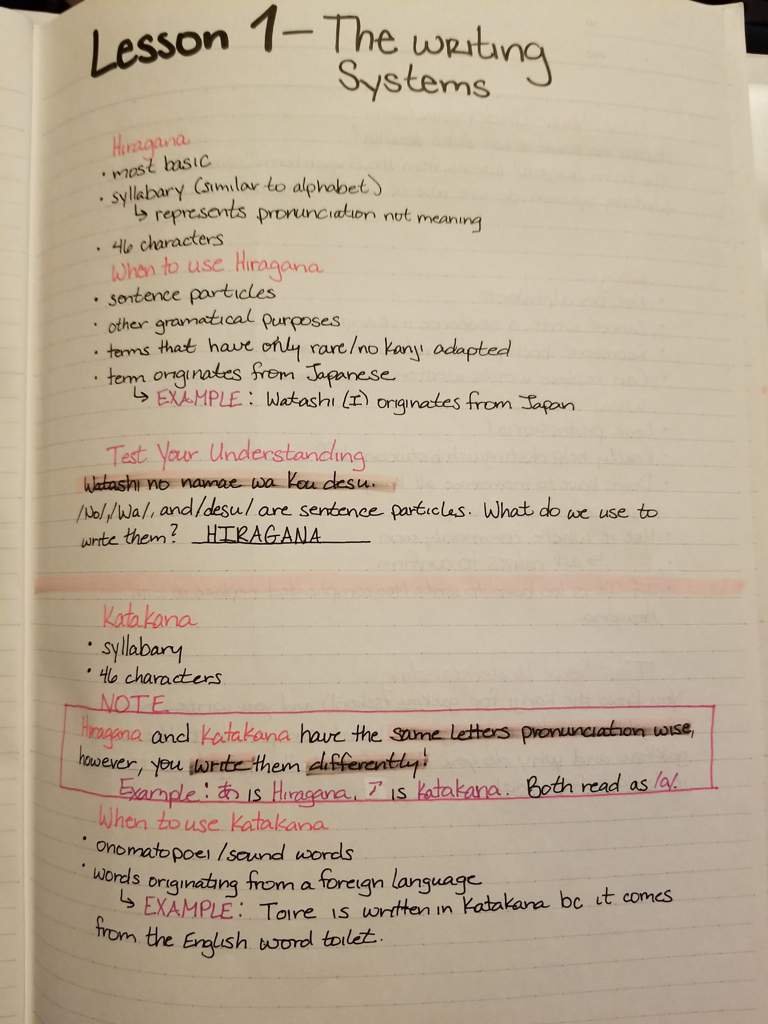 Lesson 1 – The writing
Systems
Hiragana
• most basic
• syllabary (similar to alphabet)
↳ represents pronunciation not meaning
• 46 characters
When to use Hiragana
• sentence particles
• other gramatical purposes
• terms that have only rare/no kanji adapted
• term originates from Japanese
↳ EXAMPLE: Watashi (I) originates from Japan
Test Your Understanding
Watashi no namae wa Kou desu.
/No/,/Wa/, and/desu/ are sentence particles. What do we use to
write them? HIRAGANA
Katakana
• syllabary
• 46 characters
NOTE
Hiragana and Katakana have the same letters pronunciation wise,
however, you write them differently!
Example: あ is Hiragana, ア is Katakana. Both read as /a/.
When to use Katakana
• onomatopoei/sound words
• words originating from a foreign language
↳ EXAMPLE: Toire is written in Katakana bc it comes
from the English word toilet.